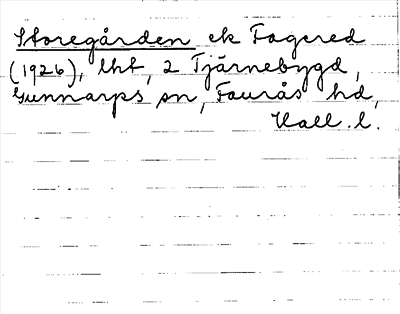 Storegården ek Fagered
(1926), lht, 2 Tjärnebygd,
Gunnarps sn, Faurås hd,
Hall. l.